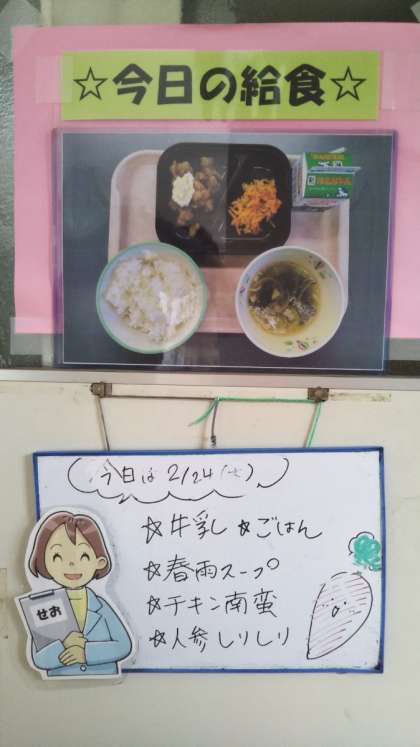 ☆今日の給食☆
今日は 2/24
☆牛乳 ☆ごはん
☆春雨スープ
☆チキン南蛮
☆人参しりしり
せお